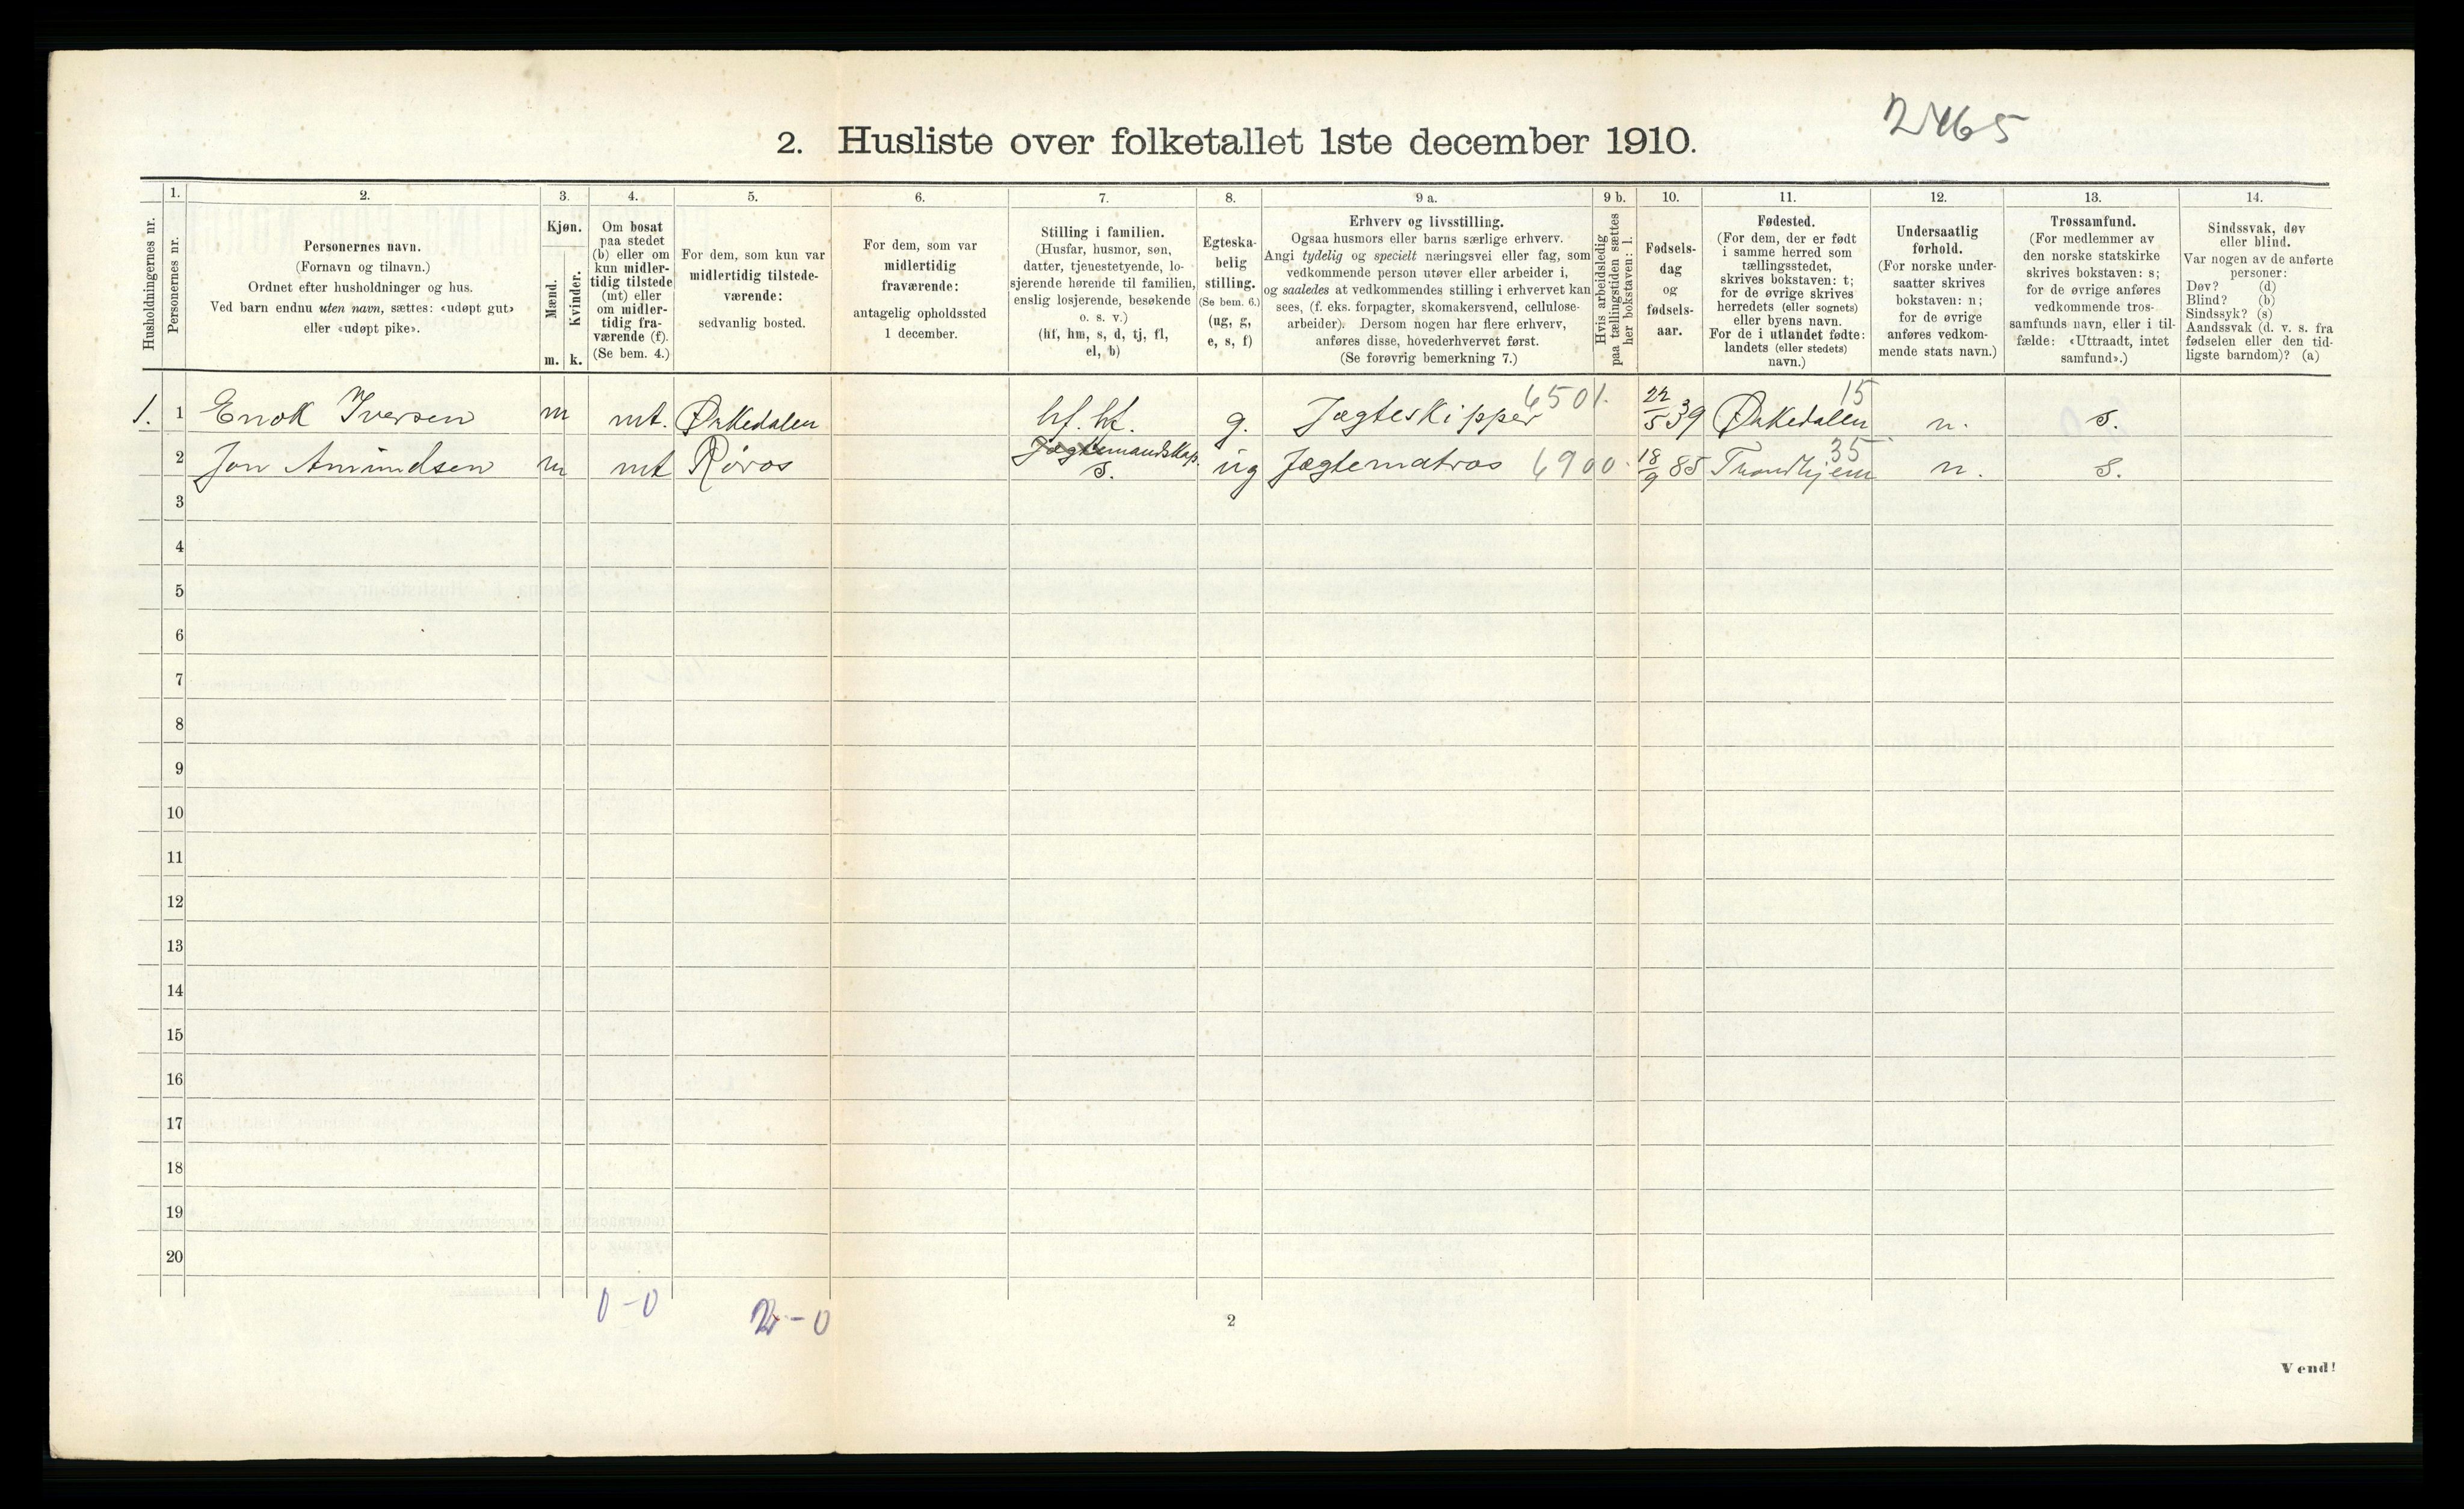 2465
2. Husliste over folketallet 1ste december 1910.
1. 2. 3. 4. 5. 6. 7. 8. 9 a. 9 b. 10. 11. 12. 13. 14.
Husholdningernes nr.
Personernes nr.
Personernes navn.
(Fornavn og tilnavn.)
Ordnet efter husholdninger og hus.
Ved barn endnu uten navn, sættes: «udøpt gut»
eller «udøpt pike».
Kjøn.
Mænd.
Kvinder.
m. k.
Om bosat
paa stedet
(b) eller om
kun midler-
tidig tilstede
(mt) eller
om midler-
tidig fra-
værende (f).
(Se bem. 4.)
For dem, som kun var
midlertidig tilstede-
værende:
sedvanlig bosted.
For dem, som var
midlertidig
fraværende:
antagelig opholdssted
1 december.
Stilling i familien.
(Husfar, husmor, søn,
datter, tjenestetyende, lo-
sjerende hørende til familien,
enslig losjerende, besøkende
o. s. v.)
(hf, hm, s, d, tj, fl,
el, b)
Egteska-
belig
stilling.
(Se bem. 6.)
(ug, g,
e, s, f)
Erhverv og livsstilling.
Ogsaa husmors eller barns særlige erhverv.
Angi tydelig og specielt næringsvei eller fag, som
vedkommende person utøver eller arbeider i,
og saaledes at vedkommendes stilling i erhvervet kan
sees, (f. eks. forpagter, skomakersvend, cellulose-
arbeider). Dersom nogen har flere erhverv,
anføres disse, hovederhvervet først.
(Se forøvrig bemerkning 7.)
Hvis arbeidsledig
paa tællingstiden sættes
her bokstaven: l.
Fødsels-
dag
og
fødsels-
aar.
Fødested.
(For dem, der er født
i samme herred som
tællingsstedet,
skrives bokstaven: t;
for de øvrige skrives
herredets (eller sognets)
eller byens navn.
For de i utlandet fødte:
landets (eller stedets)
navn.)
Undersaatlig
forhold.
(For norske under-
saatter skrives
bokstaven: n;
for de øvrige
anføres vedkom-
mende stats navn.)
Trossamfund.
(For medlemmer av
den norske statskirke
skrives bokstaven: s;
for de øvrige anføres
vedkommende tros-
samfunds navn, eller i til-
fælde: «Uttraadt, intet
samfund».)
Sindssvak, døv
eller blind.
Var nogen av de anførte
personer:
Døv? (d)
Blind? (b)
Sindssyk? (s)
Aandssvak (d. v. s. fra
fødselen eller den tid-
ligste barndom)? (a)
1. 1 Enok Iversen m mt. Ørkedalen hf. g. Jægteskipper 6501. 22/5 39 Ørkedalen 15 n. s.
2 Jon Amundsen m mt Røros Jægtemandskap. s. ug Jægtematros 6900. 18/9 85 Trondhjem 35 n. s.
3
4
5
6
7
8
9
10
11
12
13
14
15
16
17
18
19
20
0-0
2-0
2
Vend!